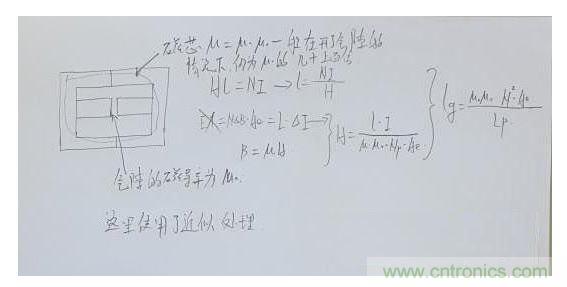 磁芯 μ = μ·μ₀ 一般在开了气隙的
情况下仍为μ₀的几十上百倍
Hl = NI → l = NI/H
= N·ΔB·Ae = L·ΔI →
B = μH
H = L·I/(μ·μ₀·Np·Ae)
lg = μ₀μ₀ N²·Ae/Lp
气隙的磁导率为μ₀
这里使用了近似处理
www.cntronics.com